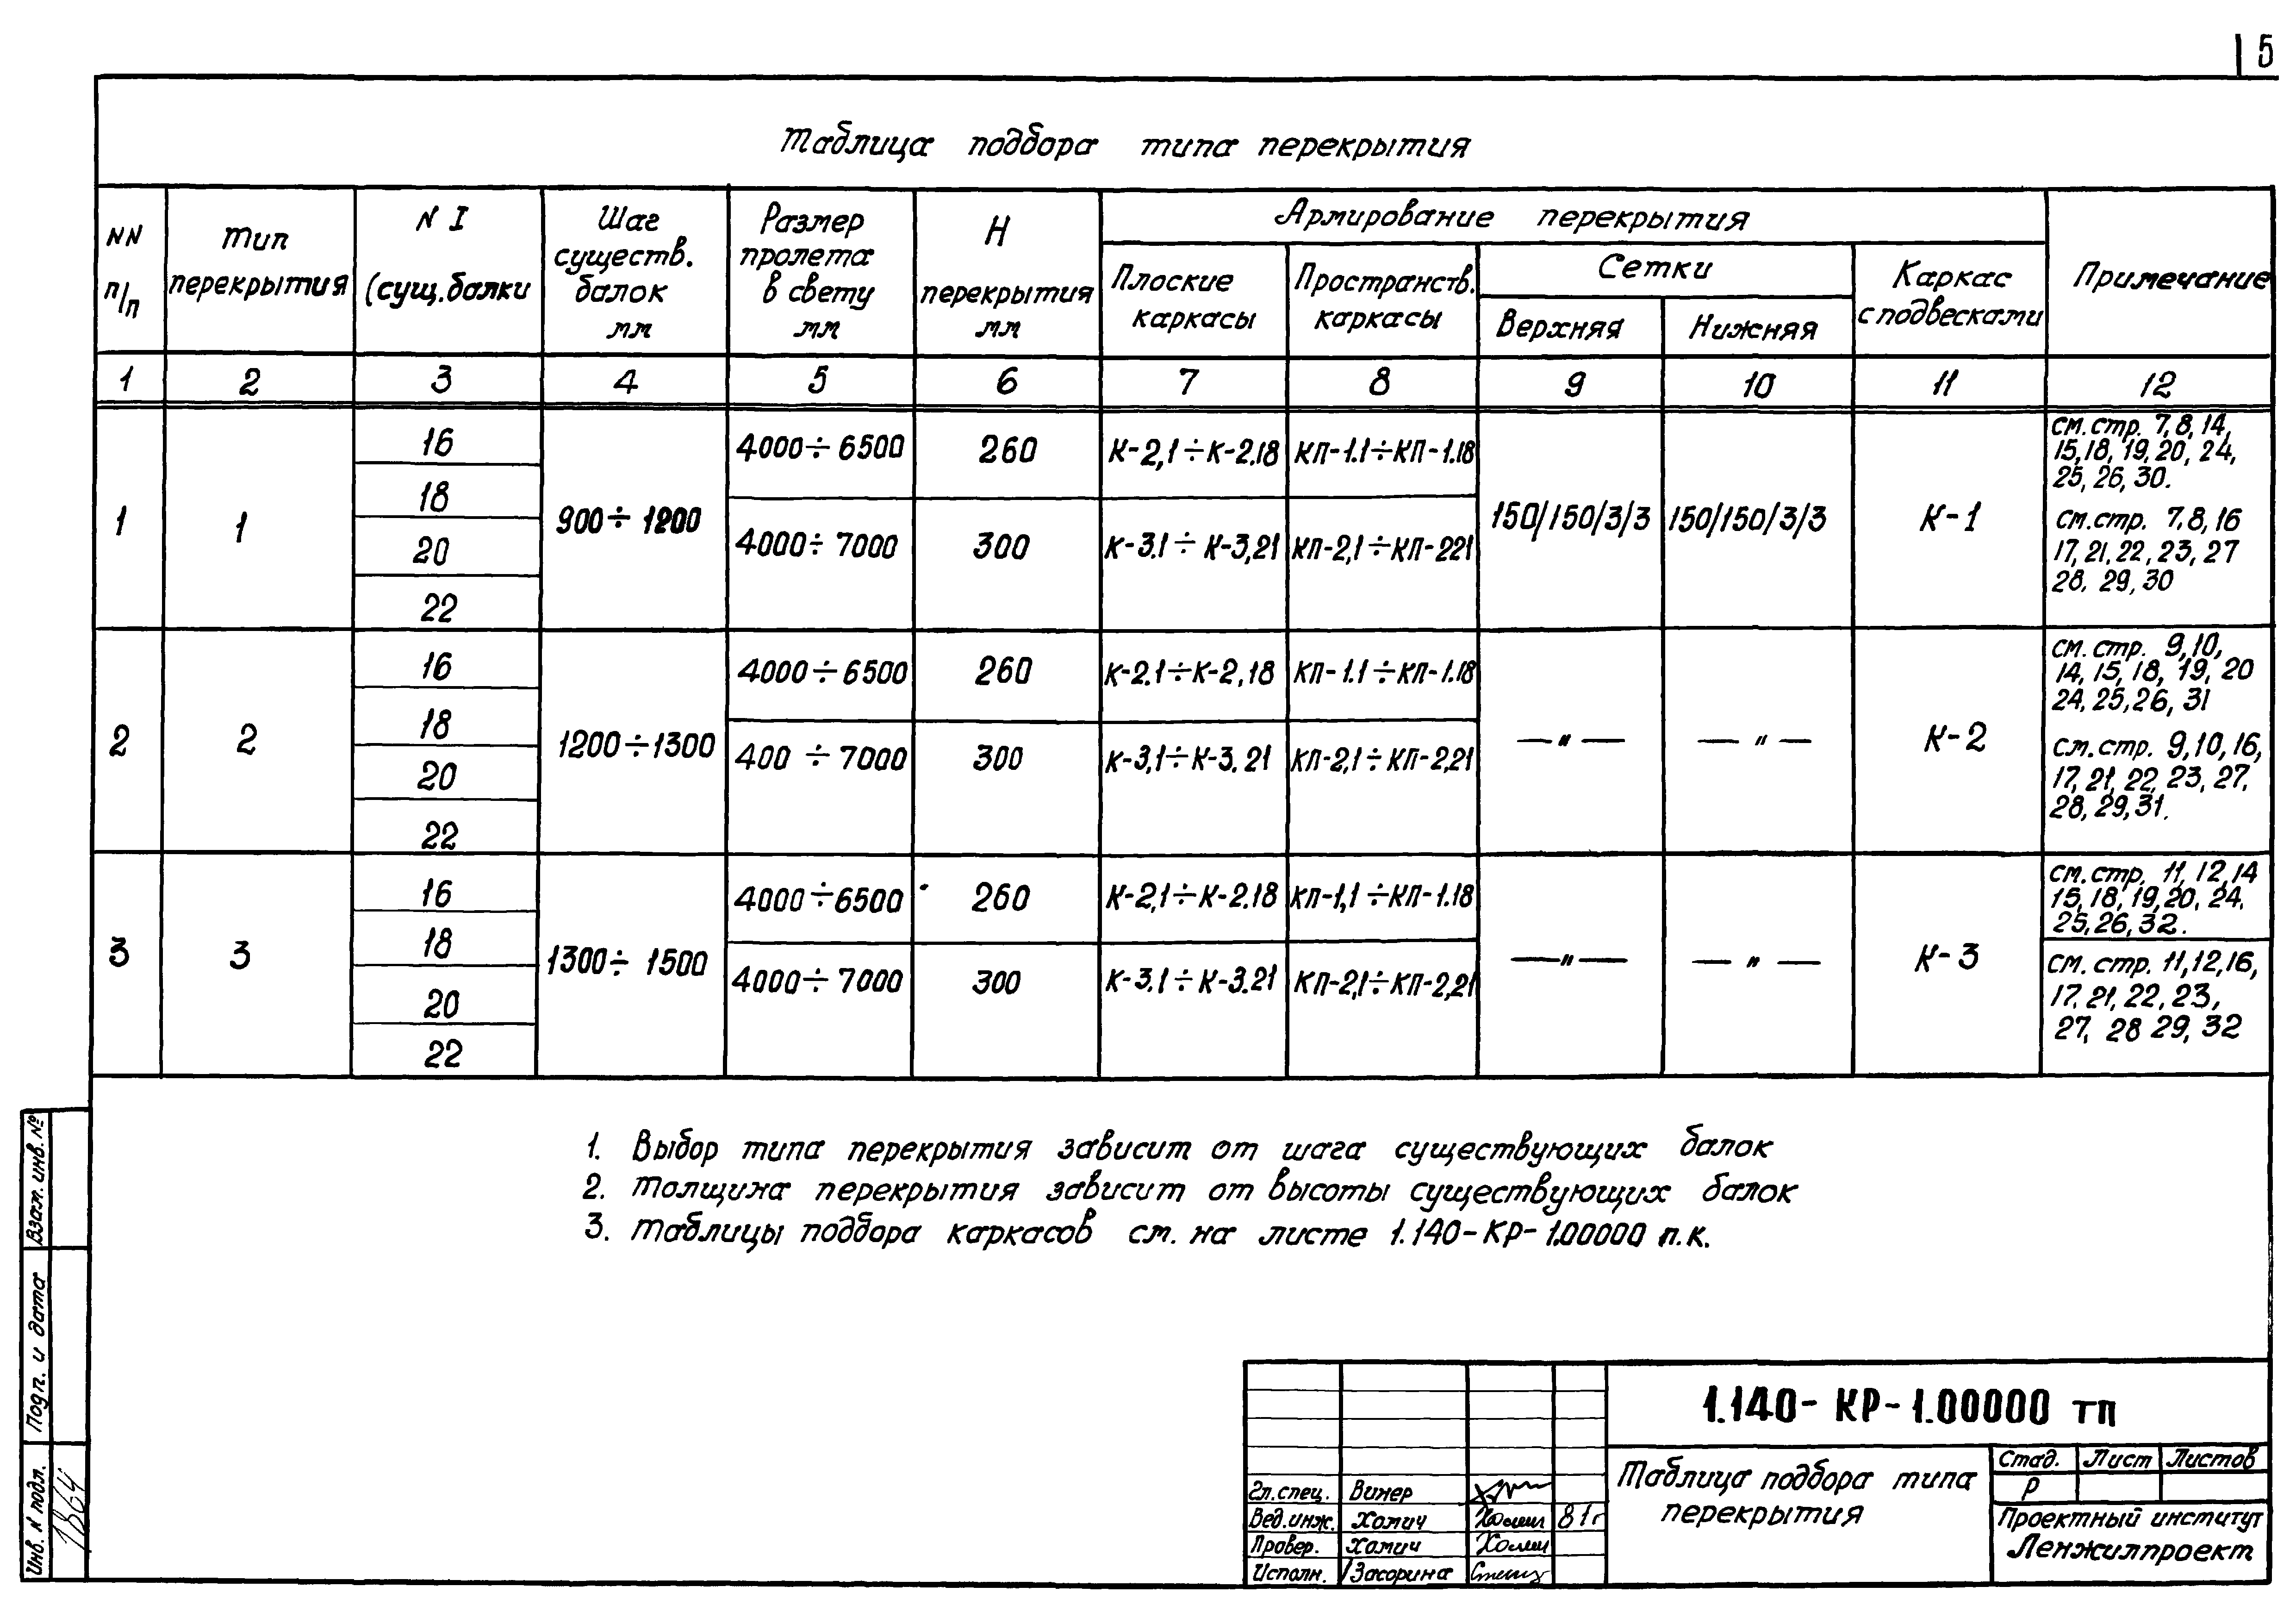 5
Таблица подбора типа перекрытия
NN п/п
Тип перекрытия
N I (сущ. балки
Шаг существ. балок мм
Размер пролета в свету мм
Н перекрытия мм
Армирование перекрытия
Плоские каркасы
Пространств. каркасы
Сетки
Верхняя
Нижняя
Каркас с подвесками
Примечание
1 2 3 4 5 6 7 8 9 10 11 12
1
1
16
18
20
22
900÷1200
4000÷6500 260 К-2,1÷К-2.18 КП-1.1÷КП-1.18
4000÷7000 300 К-3.1÷К-3,21 КП-2,1÷КП-221
150/150/3/3
150/150/3/3
К-1
см. стр. 7, 8, 14,
15, 18, 19, 20, 24,
25, 26, 30.
см. стр. 7, 8, 16
17, 21, 22, 23, 27
28. 29, 30
2
2
16
18
20
22
1200÷1300
4000÷6500 260 К-2.1÷К-2,18 КП-1.1÷КП-1.18
400 ÷7000 300 К-3,1÷К-3.21 КП-2,1÷КП-2,21
—"—
—"—
К-2
см. стр. 9, 10,
14, 15, 18, 19, 20
24, 25, 26, 31
см. стр. 9, 10, 16,
17, 21, 22, 23, 27,
28, 29, 31.
3
3
16
18
20
22
1300÷1500
4000÷6500 260 К-2,1÷К-2.18 КП-1,1÷КП-1.18
4000÷7000 300 К-3.1÷К-3.21 КП-2,1÷КП-2,21
—"—
—"—
К-3
см. стр. 11, 12, 14
15, 18, 19, 20, 24.
25, 26, 32.
см. стр. 11, 12, 16,
17. 21, 22, 23,
27, 28 29, 32
1. Выбор типа перекрытия зависит от шага существующих балок
2. Толщина перекрытия зависит от высоты существующих балок
3. Таблицы подбора каркасов см. на листе 1.140-КР-1.00000 п.к.
Взам. инв. №
Подп. и дата
Инв. N подл.
1864
1.140-КР-1.00000 тп
Таблица подбора типа
перекрытия
Стад. Лист Листов
Р
Проектный институт
Ленжилпроект
Гл. спец. Винер
Вед. инж. Хомич Хомич 81г
Провер. Хомич Хомич
Исполн. Засорина